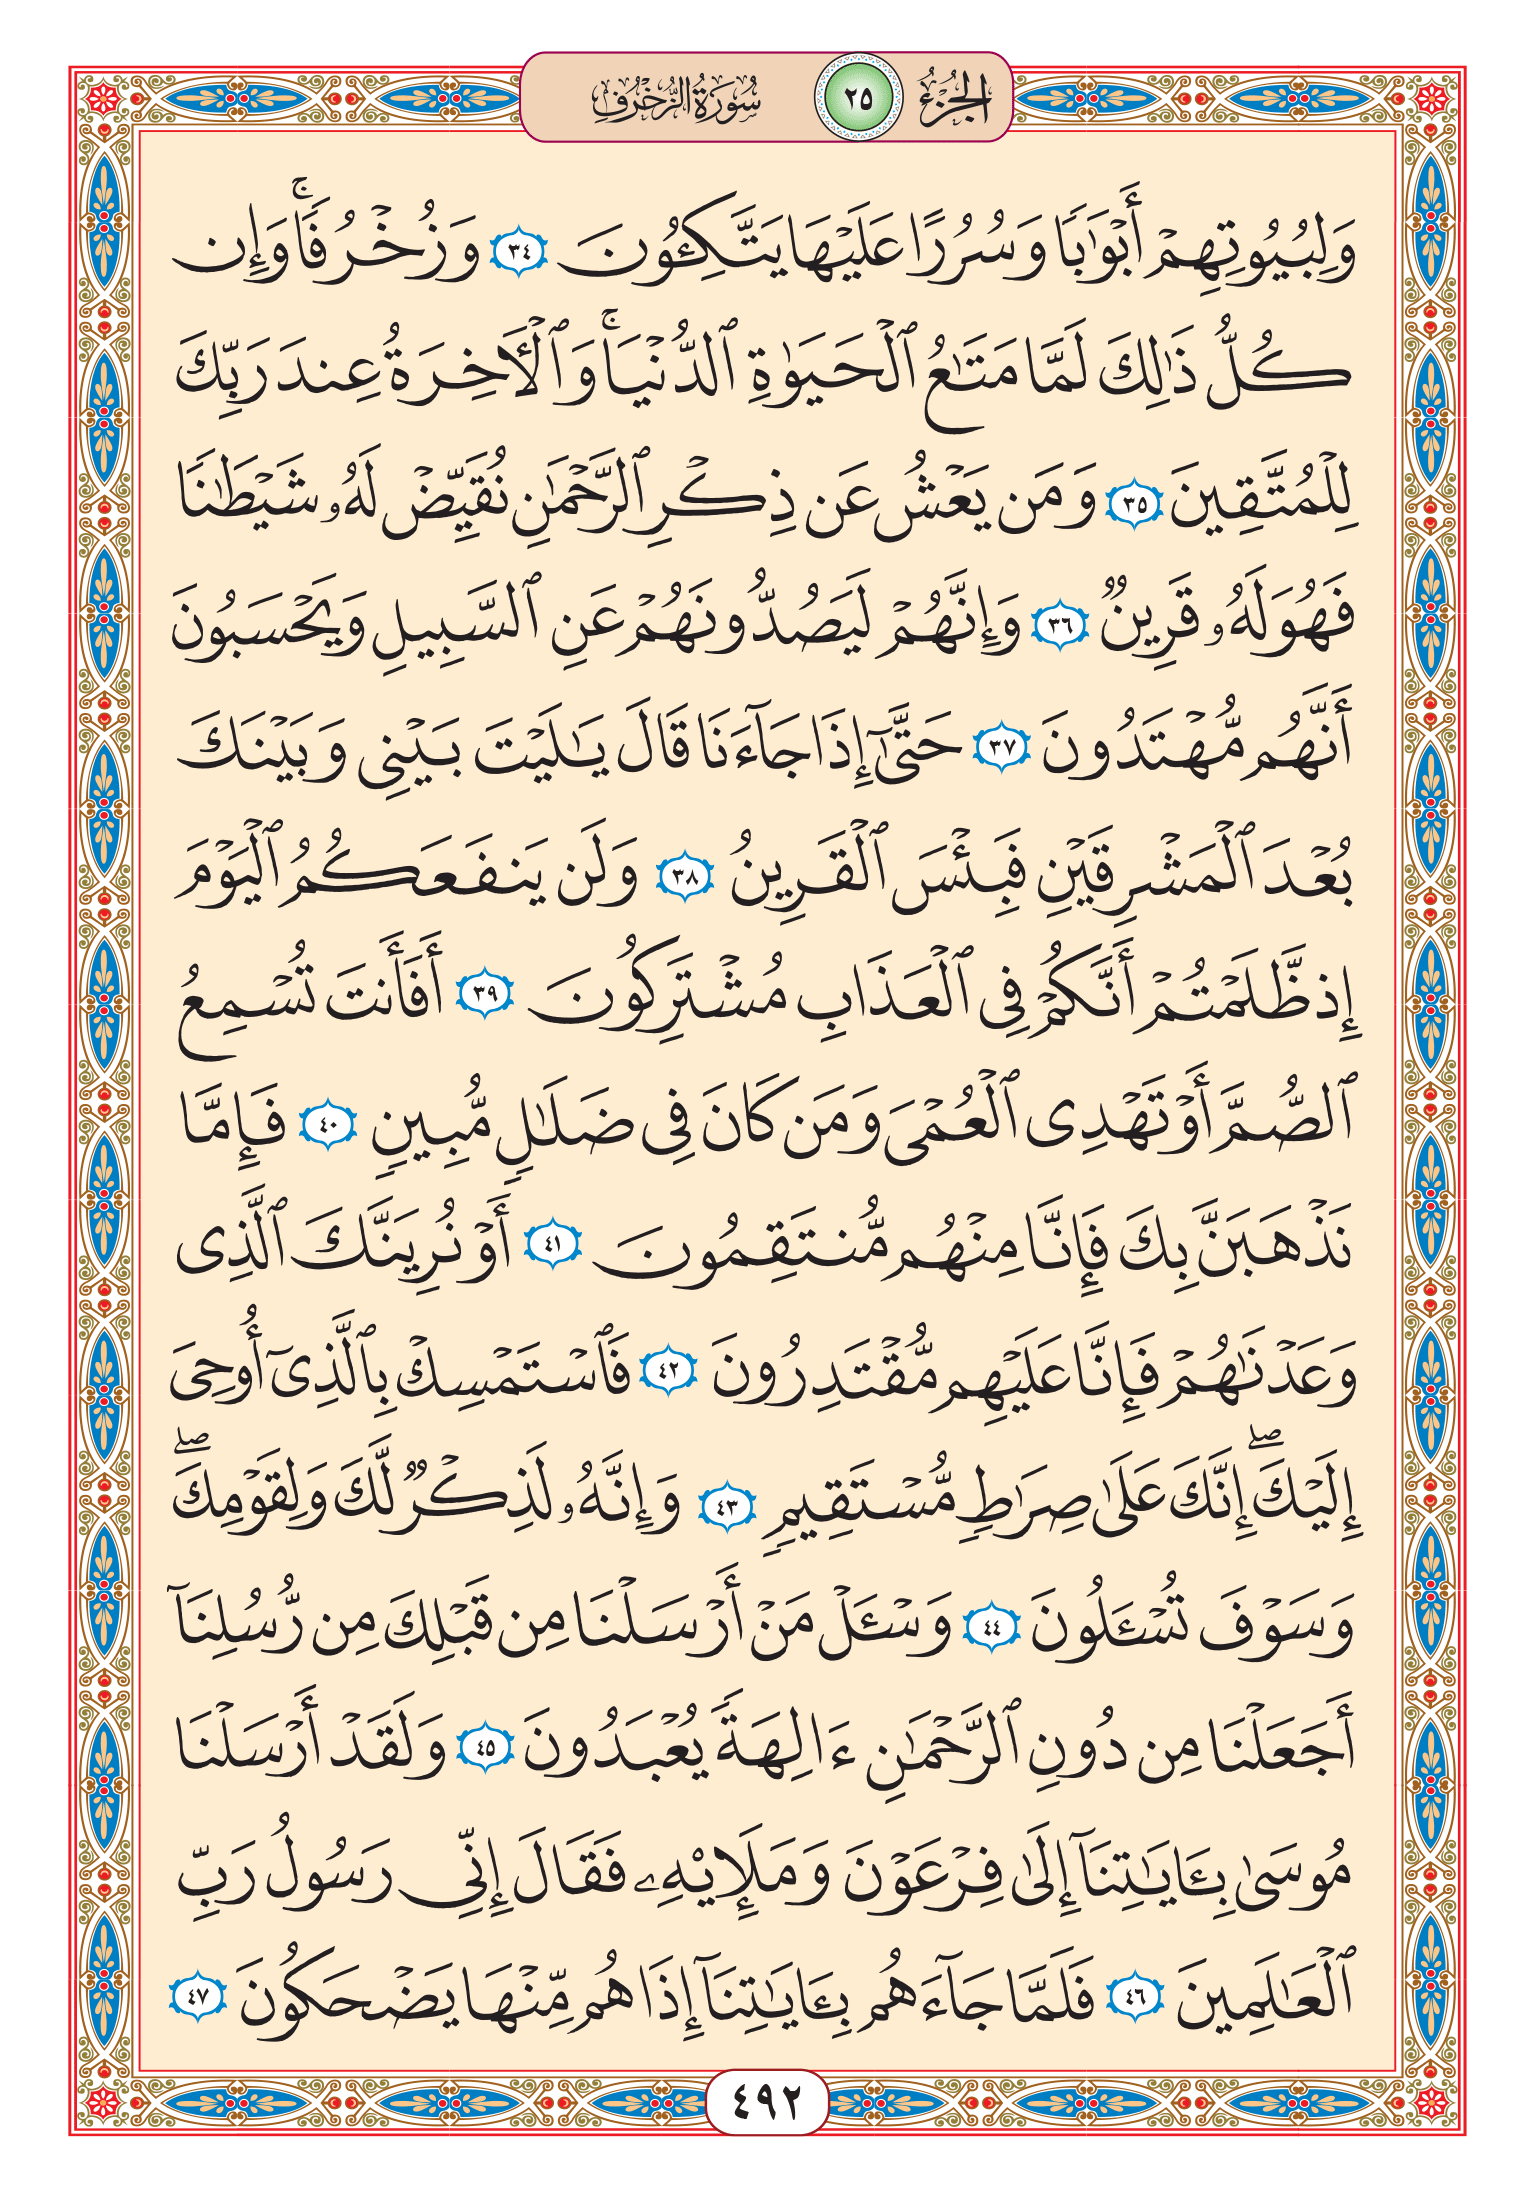 الجزء ٢٥ سورة الزخرف
وَلِبُيُوتِهِمْ أَبْوَٰبًا وَسُرُرًا عَلَيْهَا يَتَّكِـُٔونَ ٣٤ وَزُخْرُفًا ۚ وَإِن
كُلُّ ذَٰلِكَ لَمَّا مَتَـٰعُ ٱلْحَيَوٰةِ ٱلدُّنْيَا ۚ وَٱلْـَٔاخِرَةُ عِندَ رَبِّكَ
لِلْمُتَّقِينَ ٣٥ وَمَن يَعْشُ عَن ذِكْرِ ٱلرَّحْمَـٰنِ نُقَيِّضْ لَهُۥ شَيْطَـٰنًا
فَهُوَ لَهُۥ قَرِينٌ ٣٦ وَإِنَّهُمْ لَيَصُدُّونَهُمْ عَنِ ٱلسَّبِيلِ وَيَحْسَبُونَ
أَنَّهُم مُّهْتَدُونَ ٣٧ حَتَّىٰٓ إِذَا جَآءَنَا قَالَ يَـٰلَيْتَ بَيْنِى وَبَيْنَكَ
بُعْدَ ٱلْمَشْرِقَيْنِ فَبِئْسَ ٱلْقَرِينُ ٣٨ وَلَن يَنفَعَكُمُ ٱلْيَوْمَ
إِذ ظَّلَمْتُمْ أَنَّكُمْ فِى ٱلْعَذَابِ مُشْتَرِكُونَ ٣٩ أَفَأَنتَ تُسْمِعُ
ٱلصُّمَّ أَوْ تَهْدِى ٱلْعُمْىَ وَمَن كَانَ فِى ضَلَـٰلٍ مُّبِينٍ ٤٠ فَإِمَّا
نَذْهَبَنَّ بِكَ فَإِنَّا مِنْهُم مُّنتَقِمُونَ ٤١ أَوْ نُرِيَنَّكَ ٱلَّذِى
وَعَدْنَـٰهُمْ فَإِنَّا عَلَيْهِم مُّقْتَدِرُونَ ٤٢ فَٱسْتَمْسِكْ بِٱلَّذِىٓ أُوحِىَ
إِلَيْكَ ۖ إِنَّكَ عَلَىٰ صِرَٰطٍ مُّسْتَقِيمٍ ٤٣ وَإِنَّهُۥ لَذِكْرٌ لَّكَ وَلِقَوْمِكَ ۖ
وَسَوْفَ تُسْـَٔلُونَ ٤٤ وَسْـَٔلْ مَنْ أَرْسَلْنَا مِن قَبْلِكَ مِن رُّسُلِنَآ
أَجَعَلْنَا مِن دُونِ ٱلرَّحْمَـٰنِ ءَالِهَةً يُعْبَدُونَ ٤٥ وَلَقَدْ أَرْسَلْنَا
مُوسَىٰ بِـَٔايَـٰتِنَآ إِلَىٰ فِرْعَوْنَ وَمَلَإِي۟هِۦ فَقَالَ إِنِّى رَسُولُ رَبِّ
ٱلْعَـٰلَمِينَ ٤٦ فَلَمَّا جَآءَهُم بِـَٔايَـٰتِنَآ إِذَا هُم مِّنْهَا يَضْحَكُونَ ٤٧
٤٩٢